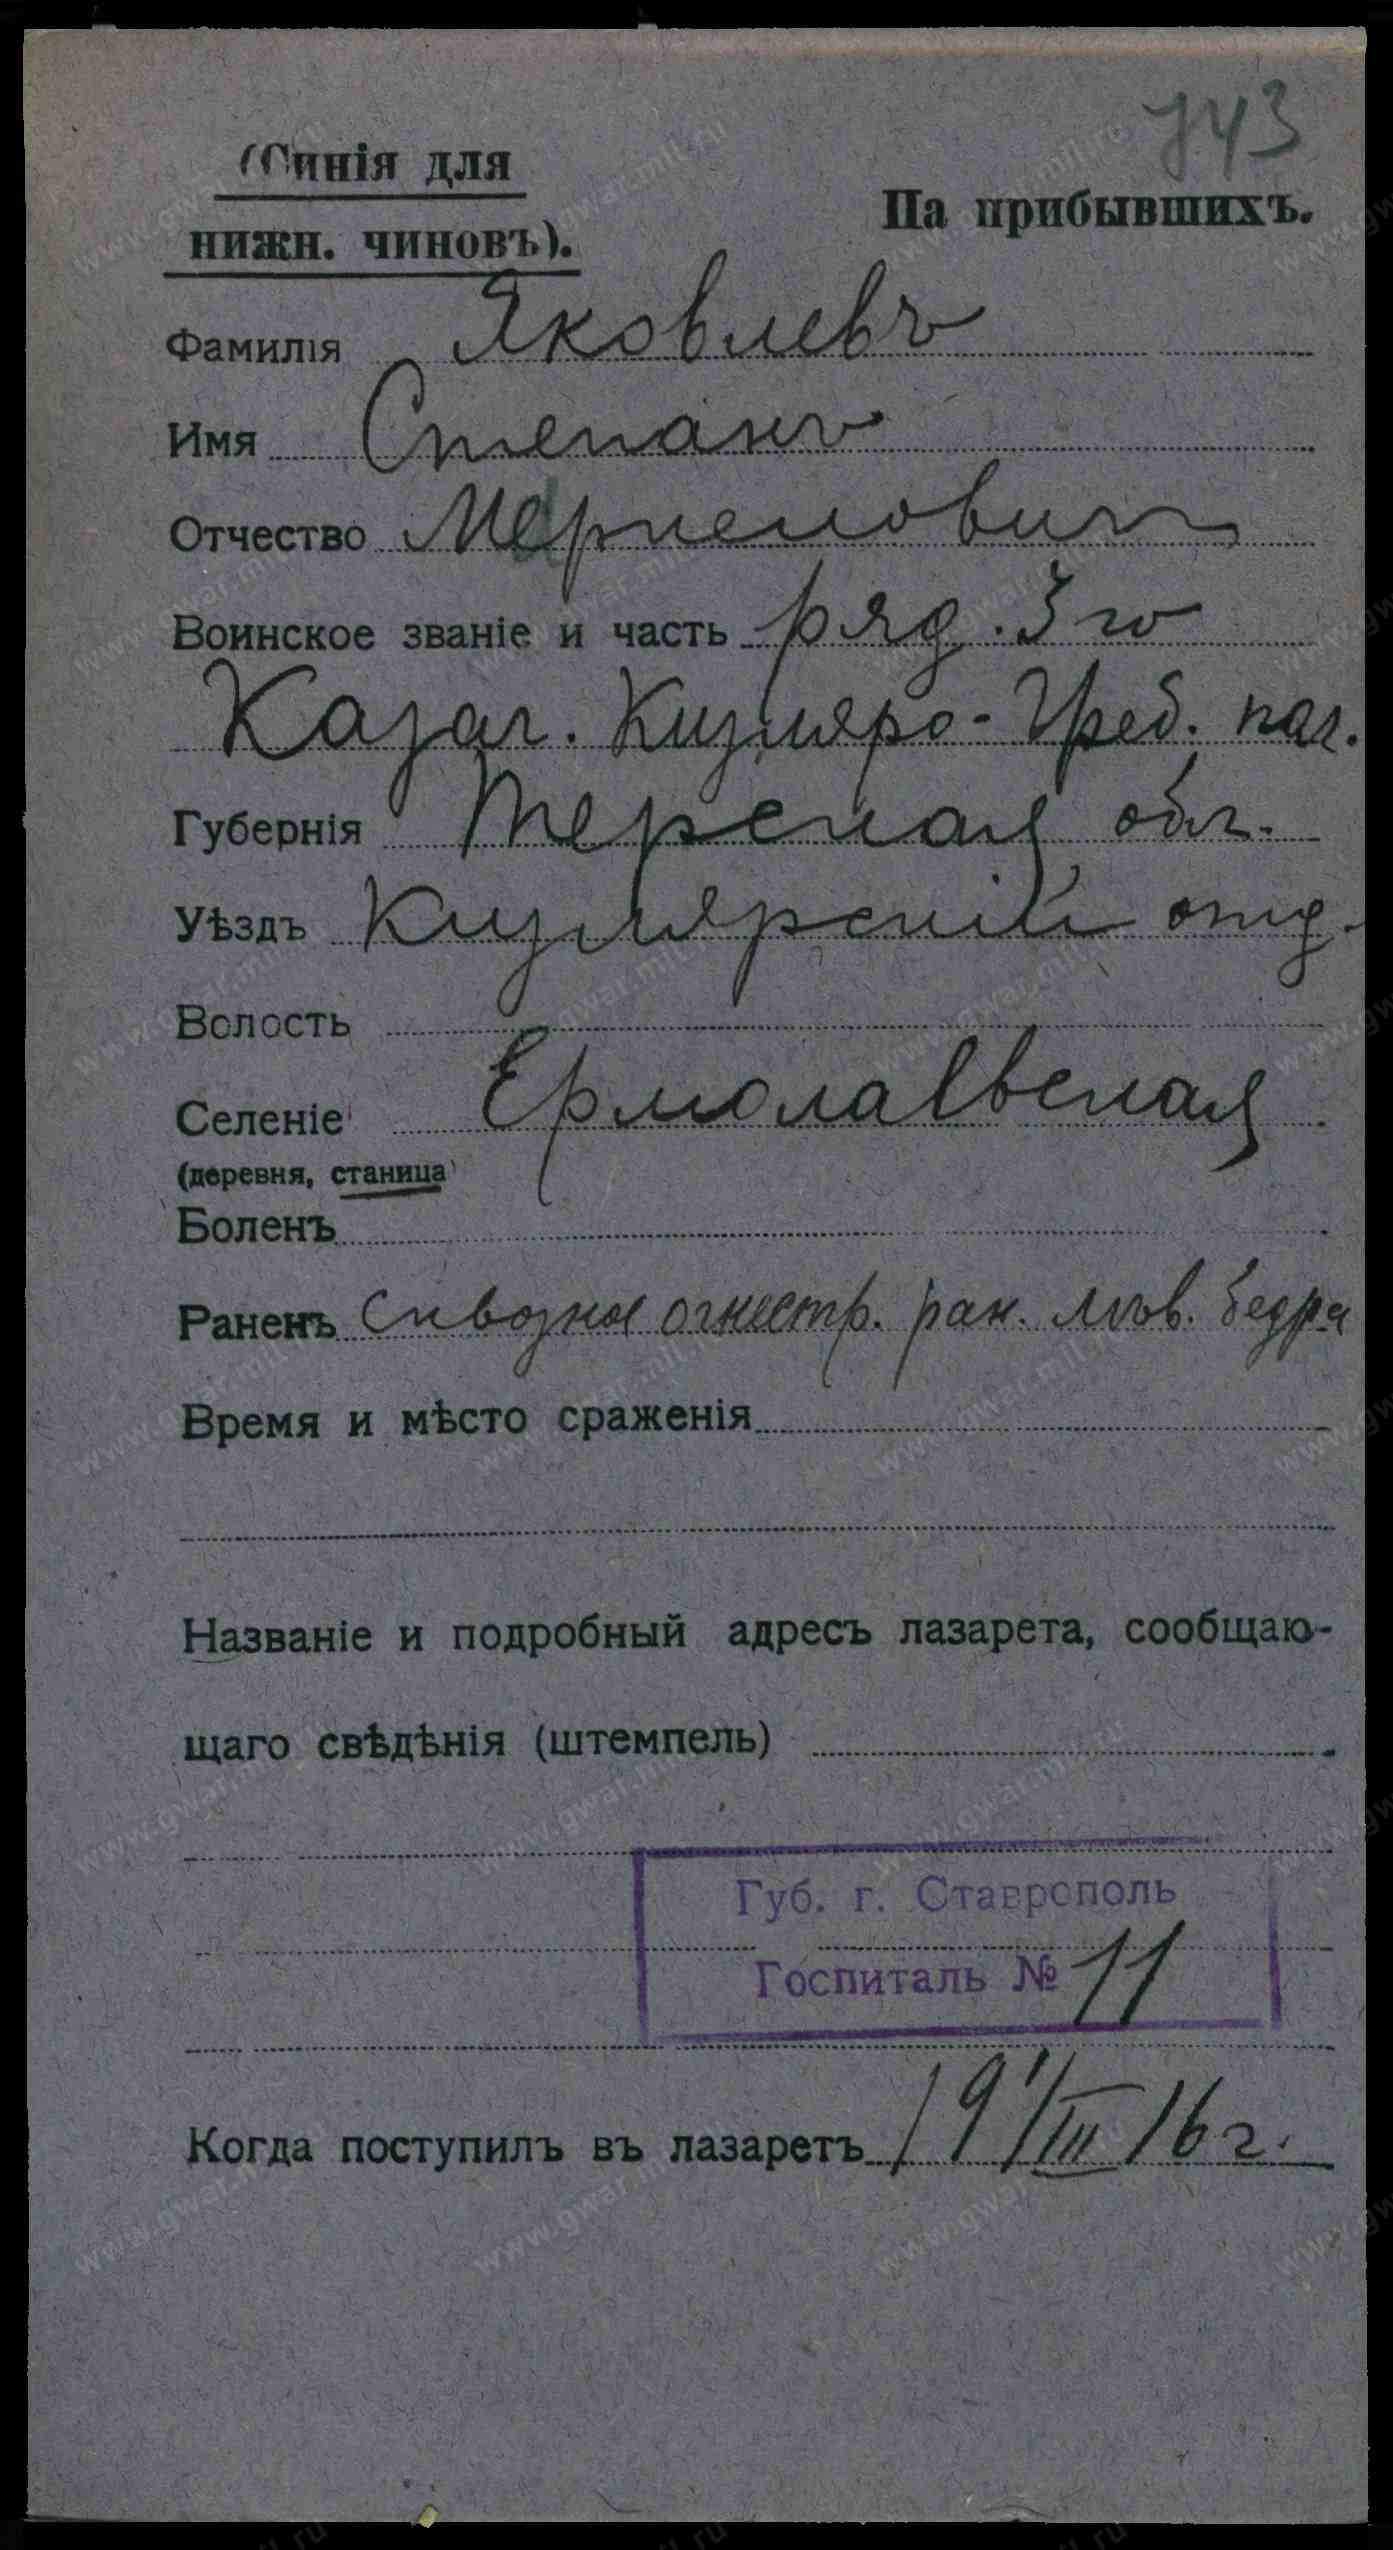 743
(Синія для
На прибывшихъ.
нижн. чиновъ).
Фамилія Яковлевъ
Имя Степанъ
Отчество
Воинское званіе и часть ряд. 3го
Казач. Кизляро-Греб. пол.
Губернія Терская обл.
Уѣздъ Кизлярскій отд.
Волость
Селеніе Ермолаевская
(деревня, станица)
Боленъ
Раненъ Сквозное огнестр. ран. лѣв. бедра
Время и мѣсто сраженія
Названіе и подробный адресъ лазарета, сообщаю-
щаго свѣдѣнія (штемпель)
Губ. г. Ставрополь
Госпиталь № 11
Когда поступилъ въ лазаретъ 19/III 16 г.
www.gwar.mil.ru